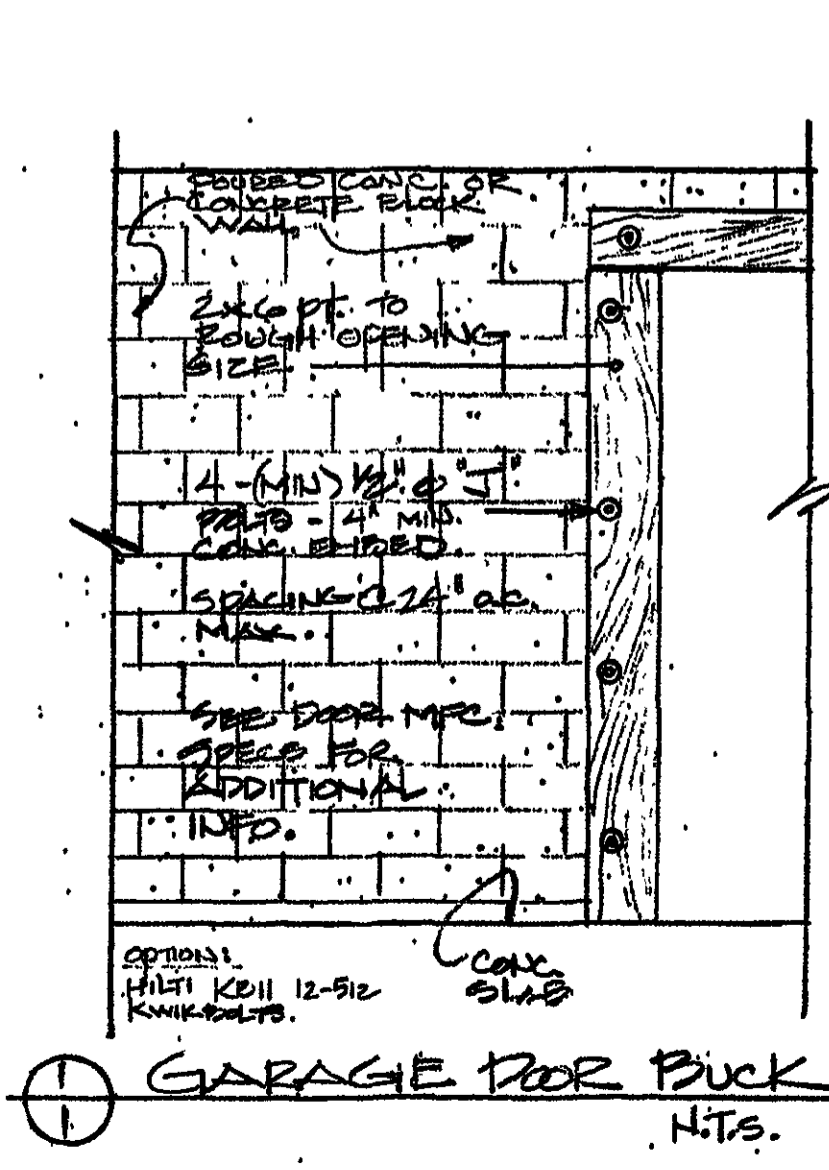 POURED CONC. OR
CONCRETE BLOCK
WALL.
2x6 PT. TO
ROUGH OPENING
SIZE.
4-(MIN) 1/2" ø "J"
BOLTS - 4" MIN.
CONC. EMBED.
SPACING @ 24" O.C.
MAX.
SEE DOOR MFG.
SPECS FOR
ADDITIONAL
INFO.
OPTION:
HILTI KBII 12-512
KWIK BOLTS.
CONC.
SLAB
1
1
GARAGE DOOR BUCK
N.T.S.